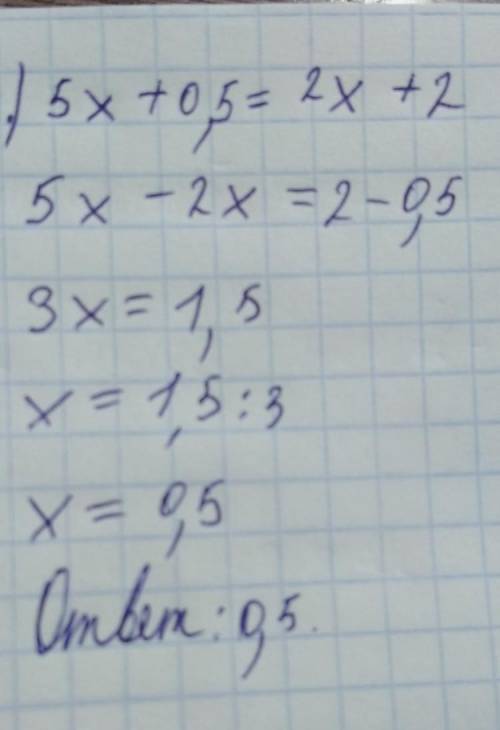 .) 5x + 0,5 = 2x + 2
5x - 2x = 2 - 0,5
3x = 1,5
x = 1,5 : 3
x = 0,5
Ответ: 0,5.